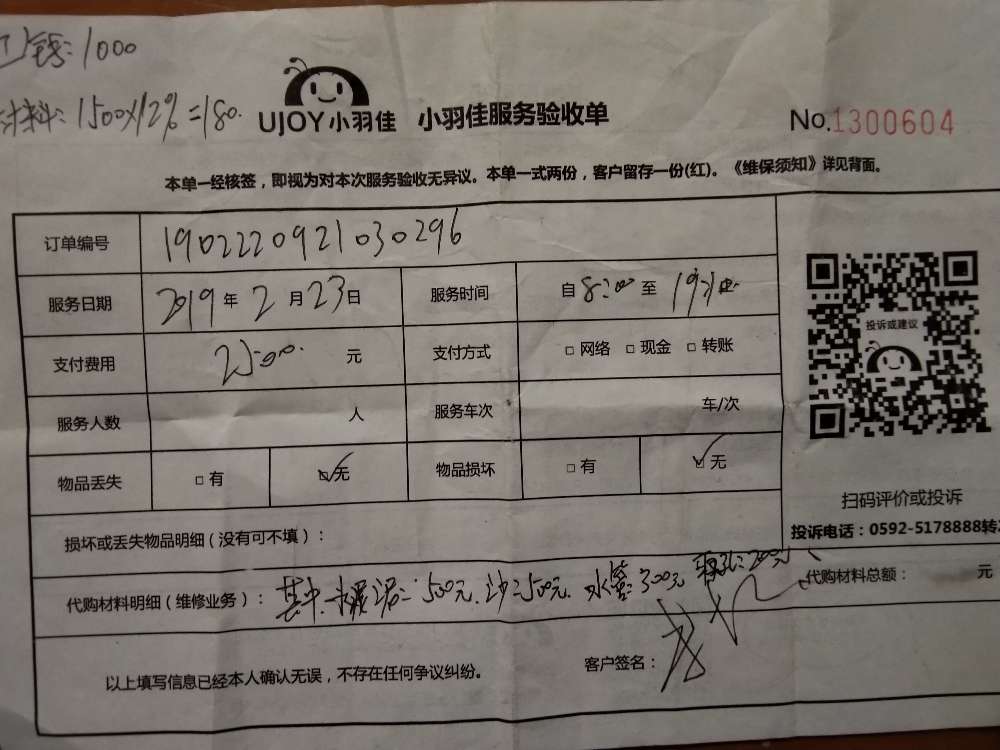 工钱:1000
材料:1500×12%=180.
UJOY小羽佳 小羽佳服务验收单 No.1300604
本单一经核签,即视为对本次服务验收无异议。本单一式两份,客户留存一份(红)。《维保须知》详见背面。
订单编号 1902220921030296
服务日期 2019年2月23日 服务时间 自8:00至
支付费用 2500. 元 支付方式 □网络 □现金 □转账
服务人数 人 服务车次 车/次
物品丢失 □有 ☑无 物品损坏 □有 ☑无
投诉或建议
扫码评价或投诉
投诉电话:0592-5178888转
损坏或丢失物品明细(没有可不填):
代购材料明细(维修业务): 其中 水泥:500元.沙:500元.水管:300元 200元
代购材料总额: 元
以上填写信息已经本人确认无误,不存在任何争议纠纷。 客户签名: